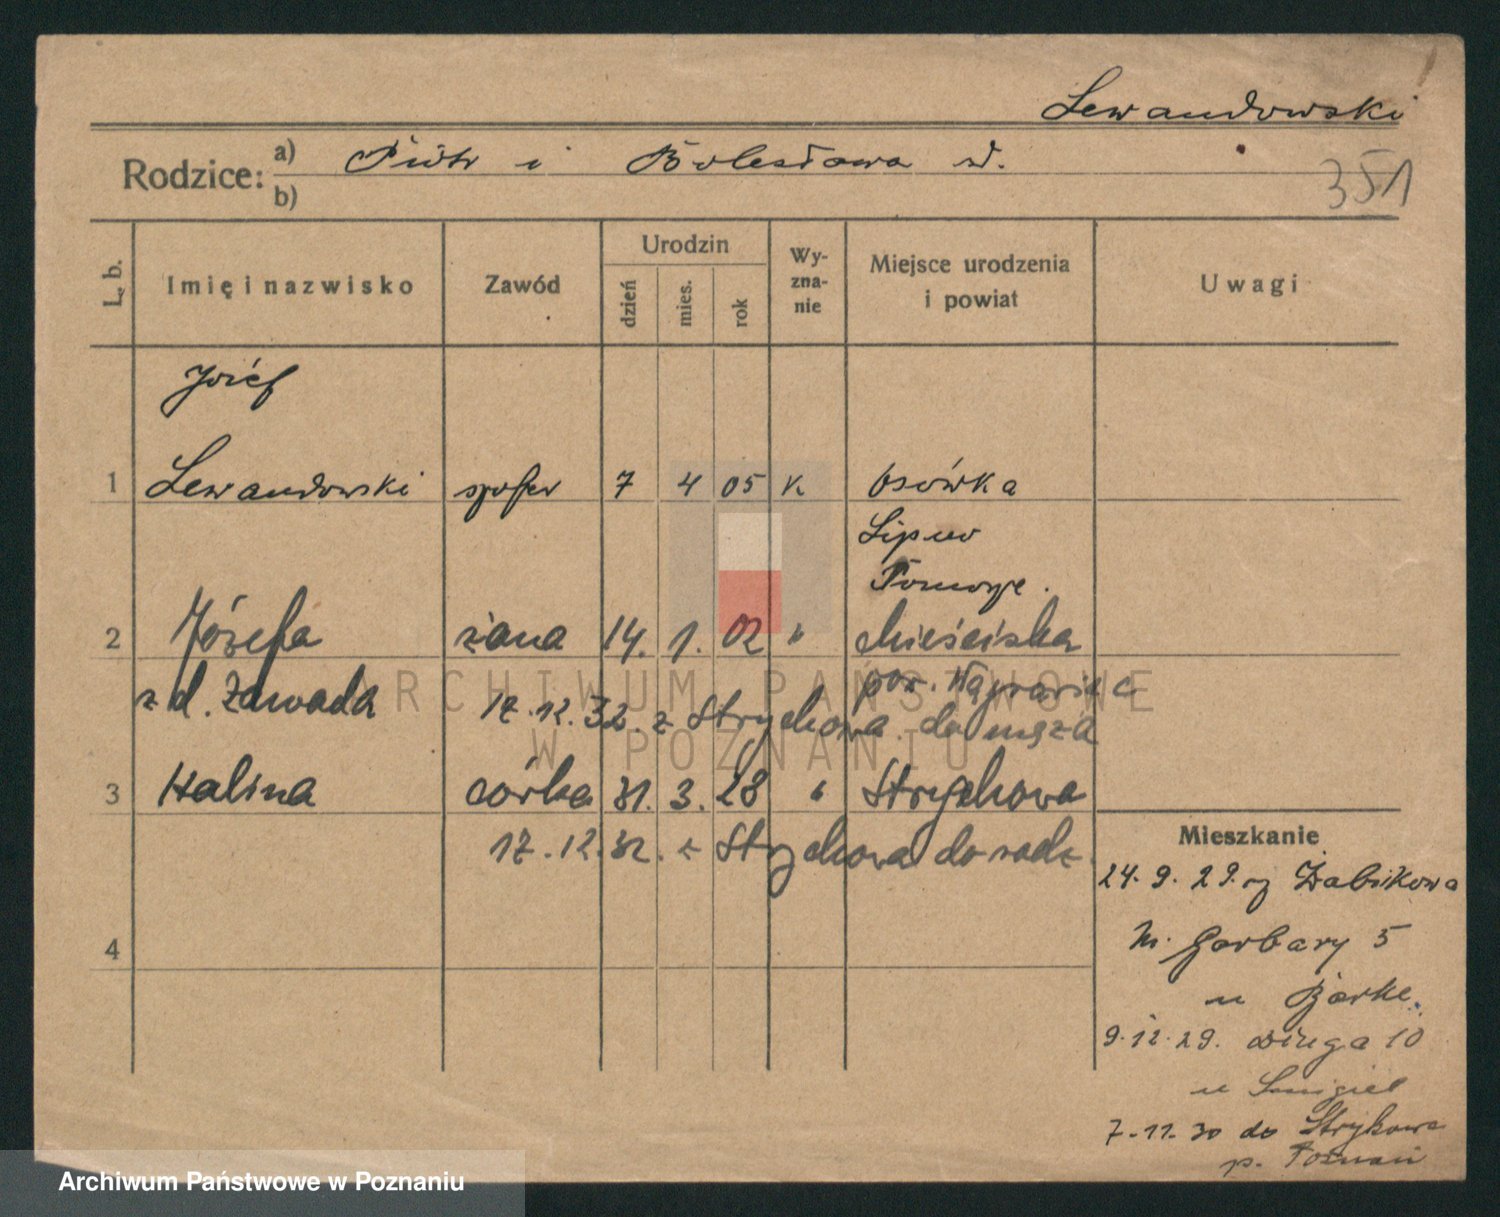 Lewandowski
Rodzice: a) Piotr i Bolesława
b)
351
L. b.
Imię i nazwisko
Zawód
Urodzin
dzień
mies.
rok
Wy-
zna-
nie
Miejsce urodzenia
i powiat
Uwagi
Józef
1 Lewandowski szofer 7 4 05 k. Osówka
Lipno
Pomorze.
2 Józefa żona 14. 1. 02 " Mieściska
z d. Zawada pow. Wągrowiec
17.12.32. z Strychowa do męża
3 Halina córka 31. 3. 28 " Strychowa
17.12.32. z Strychowa do rodz.
4
Mieszkanie
24. 9. 29. z Żabikowa
m. Garbary 5
u Barke.
9.12.29. Długa 10
u Śmigiel
7-11.30 do Strykowa
p. Poznań
ARCHIWUM PAŃSTWOWE
W POZNANIU
Archiwum Państwowe w Poznaniu